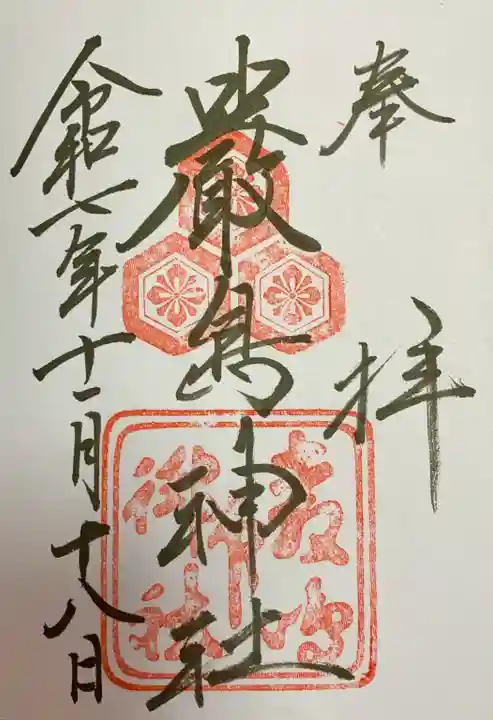 奉拝
嚴島神社
令和七年十一月十八日